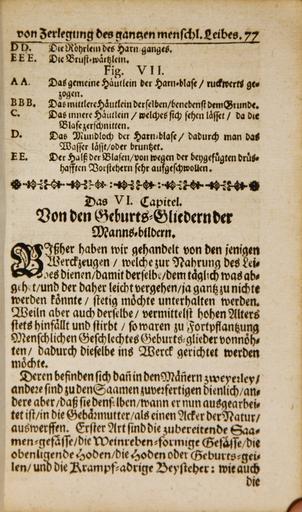 von Zerlegung des gantzen menschl. Leibes. 77
D D. Die Röhrlein des Harn-ganges.
E E E. Die Brust-wärtzlein.
Fig. VII.
A A. Das gemeine Häutlein der Harn-blase / ruckwerts ge-
zogen.
B B B. Das mittlere Häutlein derselben / benebenst dem Grunde.
C. Das innere Häutlein / welches sich sehen lässet / da die
Blase zerschnitten.
D. Das Mundloch der Harn-blase / dadurch man das
Wasser lässt / oder bruntzet.
E E. Der Halß der Blasen / von wegen der beygefügten drüs-
hafften Vorstehern sehr aufgeschwollen.
Das VI. Capitel.
Von den Geburts-Gliedern der
Manns-bildern.
Bißher haben wir gehandelt von den jenigen
Werckzeugen / welche zur Nahrung des Lei-
bes dienen / damit derselbe / dem täglich was ab-
gehet / und der daher leicht vergehen / ja gantz zu nichte
werden könnte / stetig möchte unterhalten werden.
Weiln aber auch derselbe / vermittelst hohen Alters
stets hinfällt und stirbt / so waren zu Fortpflantzung
Menschlichen Geschlechtes Geburts-glieder vonnöh-
ten / dadurch dieselbe ins Werck gerichtet werden
möchte.
Deren befinden sich dañ in den Mäñern zweyerley /
andere sind zu den Saamen zu verfertigen dienlich / an-
dere aber / daß sie denselben / wann er nun ausgearbei-
tet ist / in die Gebärmutter / als einen Acker der Natur /
auswerffen. Erster Art sind die zubereitende Saa-
men-gefässe / die Weinreben-förmige Gefässe / die
obenligende Hoden / die Hoden oder Geburts-gei-
len / und die Krampf-adrige Beysteher: wie auch
die